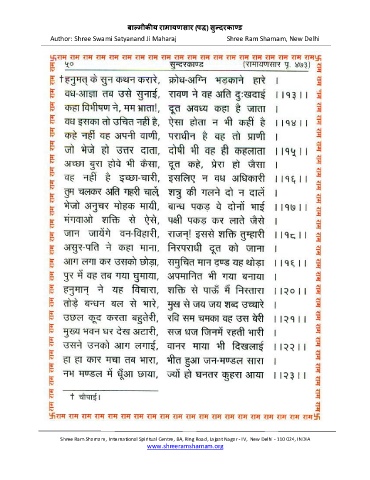 बाल्मीकीय रामायणसार (पद्य) सुन्दरकाण्ड
Author: Shree Swami Satyanand Ji Maharaj Shree Ram Sharnam, New Delhi
राम राम राम राम राम राम राम राम राम राम राम राम राम राम राम राम राम राम
५० सुन्दरकाण्ड (रामायणसार पृ. ४७३)
†हनुमत् के सुन कथन करारे, क्रोध-अग्नि भड़काने हारे ।
वध-आज्ञा तव उसे सुनाई, रावण ने वह अति दुःखदाई ।।१३।।
कहा विभीषण ने, मम भ्राता!, दूत अवध्य कहा है जाता ।
वध इसका तो उचित नहीं है, ऐसा होता न भी कहीं है ।।१४।।
कहे नहीं वह अपनी वाणी, पराधीन है वह तो प्राणी ।
जो भेजे हो उत्तर दाता, दोषी भी वह ही कहलाता ।।१५।।
अच्छा बुरा होवे भी कैसा, दूत कहे, प्रेरा हो जैसा ।
वह नहीं है इच्छा-चारी, इसलिए न वध अधिकारी ।।१६।।
तुम चलकर अति गहरी चालें, शत्रु की गलने दो न दालें ।
भेजो अनुचर मोहक मायी, बान्ध पकड़ वे दोनों भाई ।।१७।।
मंगवाओ शक्ति से ऐसे, पक्षी पकड़ कर लाते जैसे ।
जान जायेंगे वन-विहारी, राजन्! इससे शक्ति तुम्हारी ।।१८।।
असुर-पति ने कहा माना, निरपराधी दूत को जाना ।
आग लगा कर उसको छोड़ा, समुचित मान दण्ड वह थोड़ा ।।१९।।
पुर में वह तब गया घुमाया, अपमानित भी गया बनाया ।
हनुमान् ने यह विचारा, शक्ति से पाऊँ मैं निस्तारा ।।२०।।
तोड़े बन्धन बल से भारे, मुख से जय जय शब्द उच्चारे ।
उछल कूद करता बहुतेरी, रवि सम चमका वह उस बेरी ।।२१।।
मुख्य भवन घर देख अटारी, सज धज जिनमें रहती भारी ।
उसने उनको आग लगाई, वानर माया भी दिखलाई ।।२२।।
हा हा कार मचा तब भारा, भीत हुआ जन-मण्डल सारा ।
नभ मण्डल में धूँआ छाया, ज्यों हो घनतर कुहरा आया ।।२३।।
† चौपाई।
राम राम राम राम राम राम राम राम राम राम राम राम राम राम राम राम राम राम
Shree Ram Sharnam, International Spiritual Centre, 8A, Ring Road, Lajpat Nagar - IV, New Delhi - 110 024, INDIA
www.shreeramsharnam.org